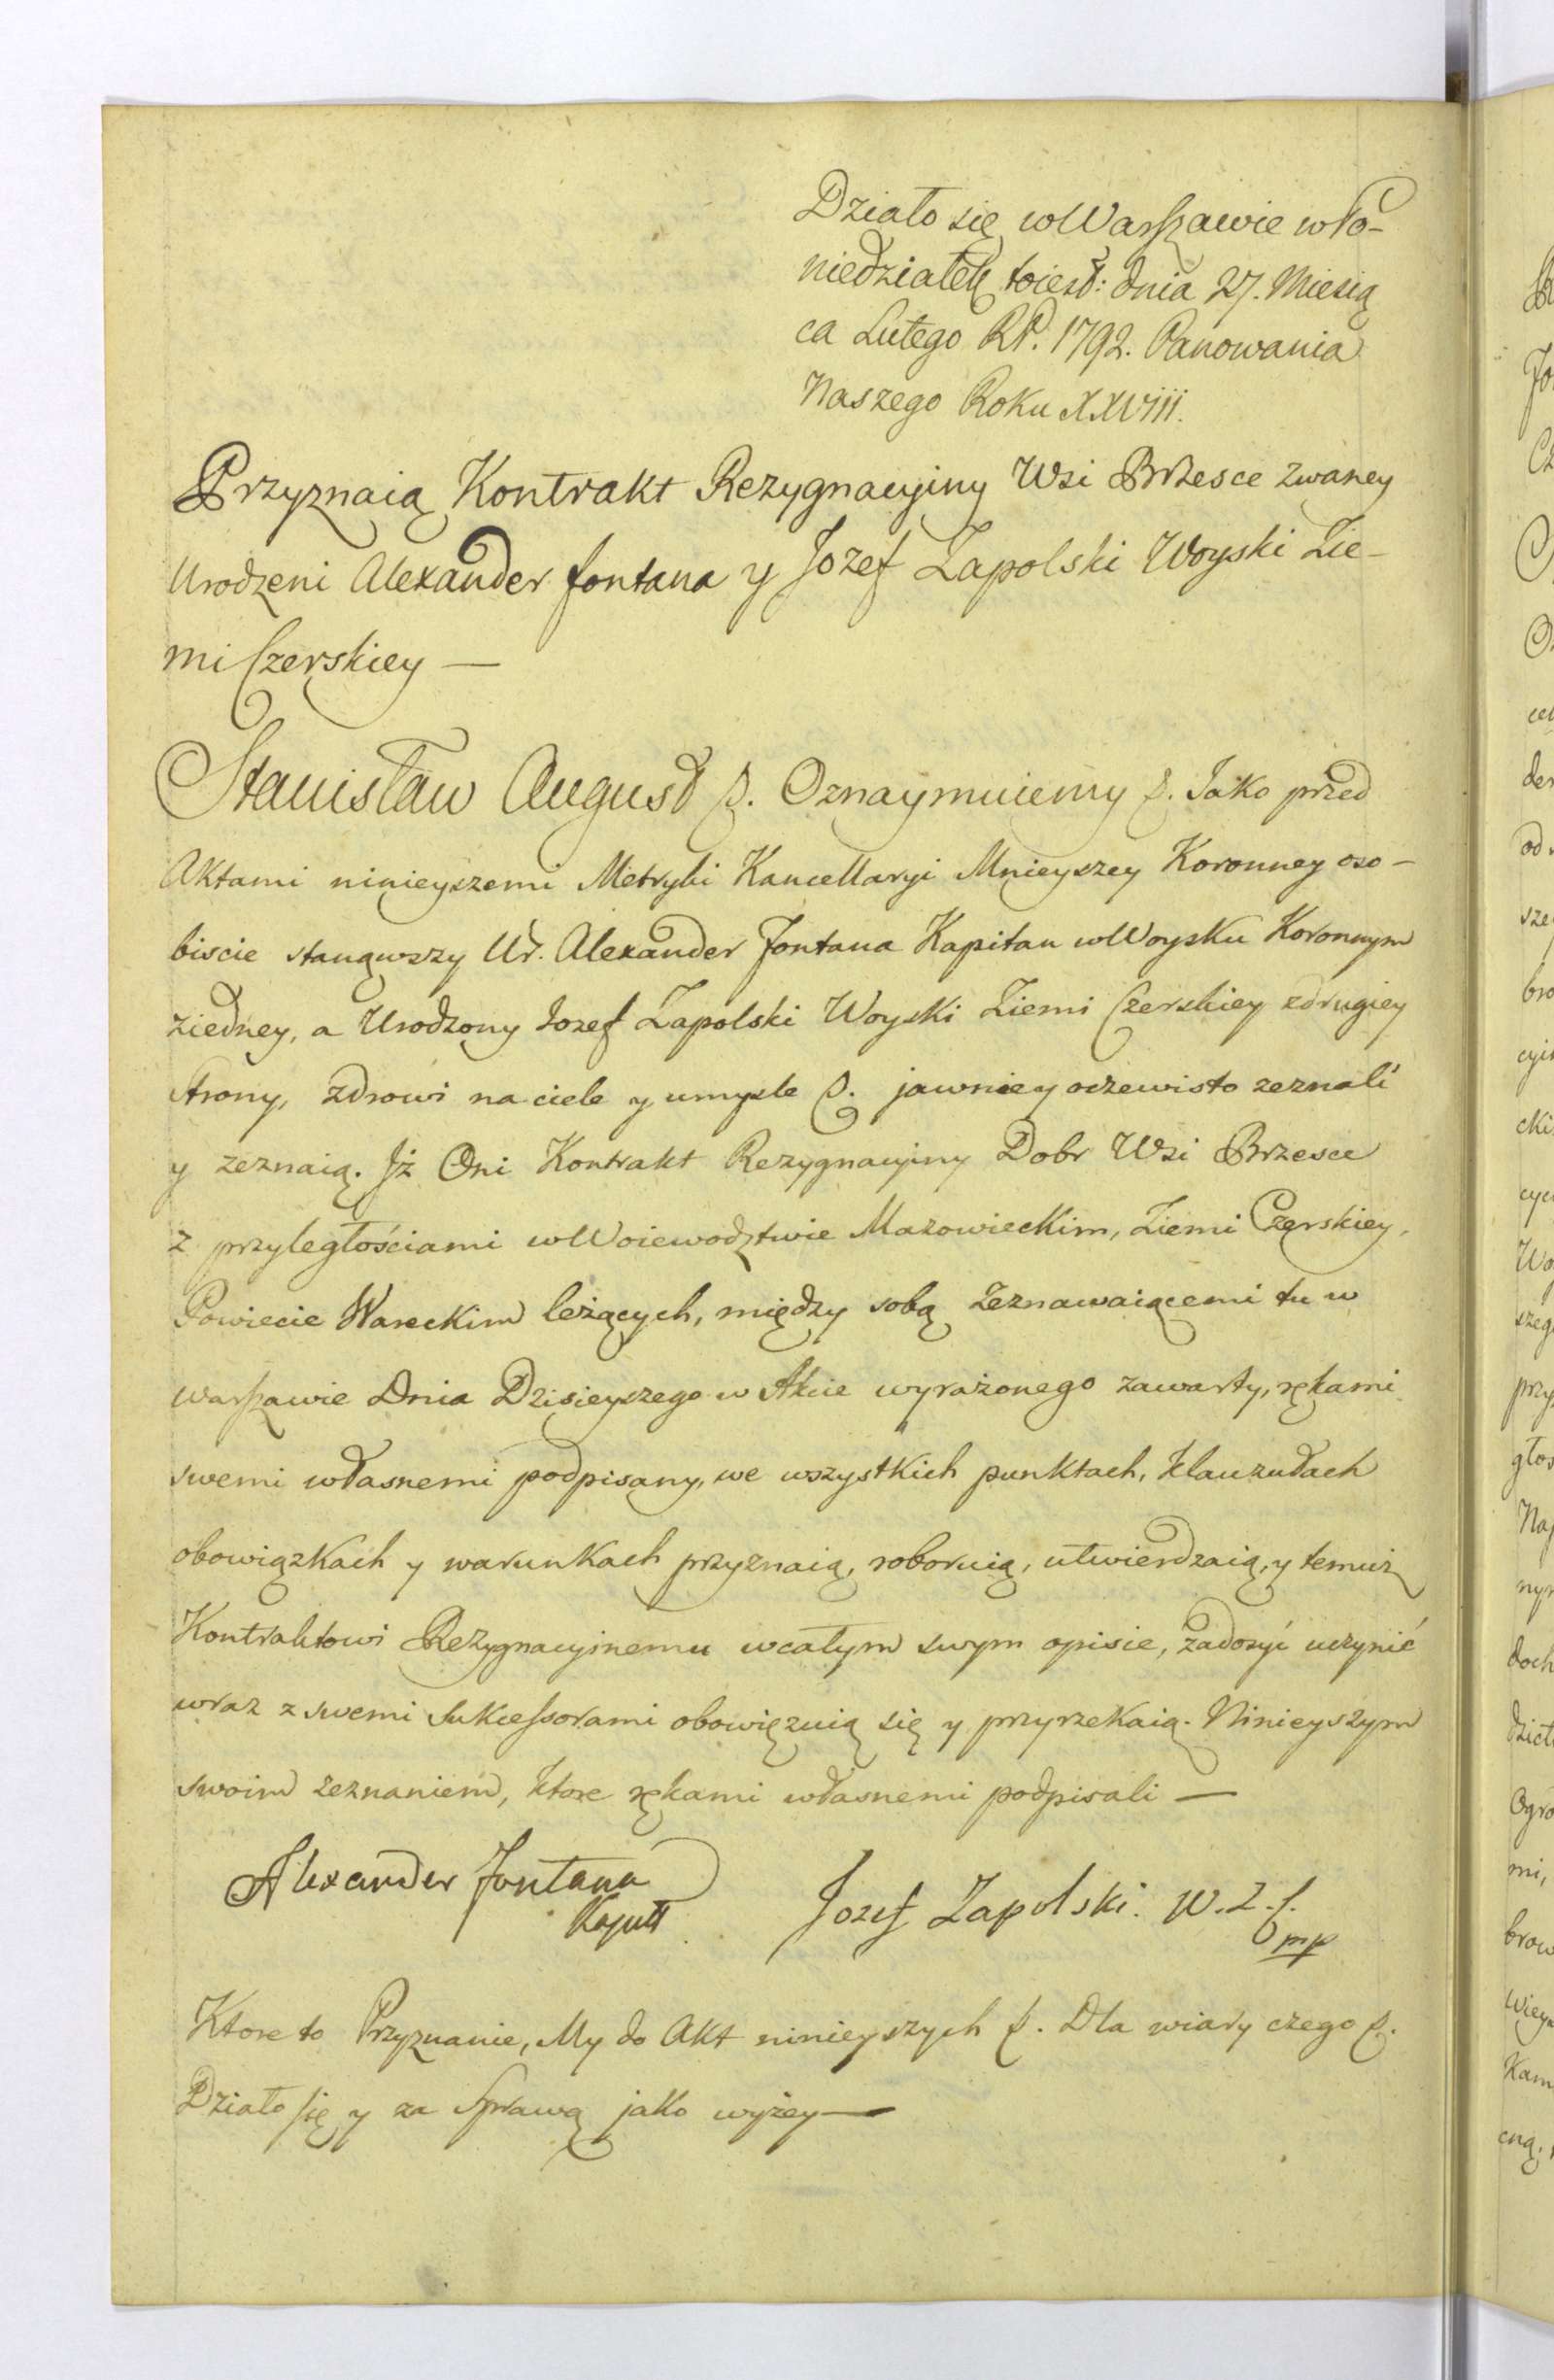 Działo się w Warszawie w Po-
niedziałek toiest: dnia 27. Miesią
ca Lutego RP. 1792. Panowania
Naszego Roku XXVIII.
Przyznaią Kontrakt Rezygnacyiny Wsi Brzesce zwaney
Urodzeni Alexander fontana y Jozef Zapolski Woyski Zie-
mi Czerskiey —
Stanisław August &. Oznaymuiemy &. Jako przed
Aktami ninieyszemi Metryki Kancellaryi Mnieyszey Koronney oso-
biscie stanąwszy Ur. Alexander Fontana Kapitan w Woysku Koronnym
ziedney, a Urodzony Jozef Zapolski Woyski Ziemi Czerskiey zdrugiey
strony, zdrowi na ciele y umysle &. jawnie y oczewisto zeznali
y zeznaią. Jż Oni Kontrakt Rezygnacyiny Dobr Wsi Brzesce
z przyległościami w Woiewodztwie Mazowieckim, Ziemi Czerskiey,
Powiecie Wareckim leżących, między sobą Zeznawaiącemi tu w
Warszawie Dnia Dzisieyszego w Akcie wyrażonego zawarty, rękami
swemi własnemi podpisany, we wszystkich punktach, klauzułach
obowiązkach y warunkach przyznaią, roboruią, utwierdzaią, y temuż
Kontraktowi Rezygnacyinemu wcałym swym opisie, zadosyć uczynić
wraz z swemi Sukcessorami obowięzuią się y przyrzekaią. Ninieyszym
swoim zeznaniem, ktore rękami własnemi podpisali —
Alexander Fontana
Jozef Zapolski. W. Z. C.
mp
Ktore to Przyznanie, My do Akt ninieyszych &. Dla wiary czego &.
Działo się y za Sprawą jako wyżey —